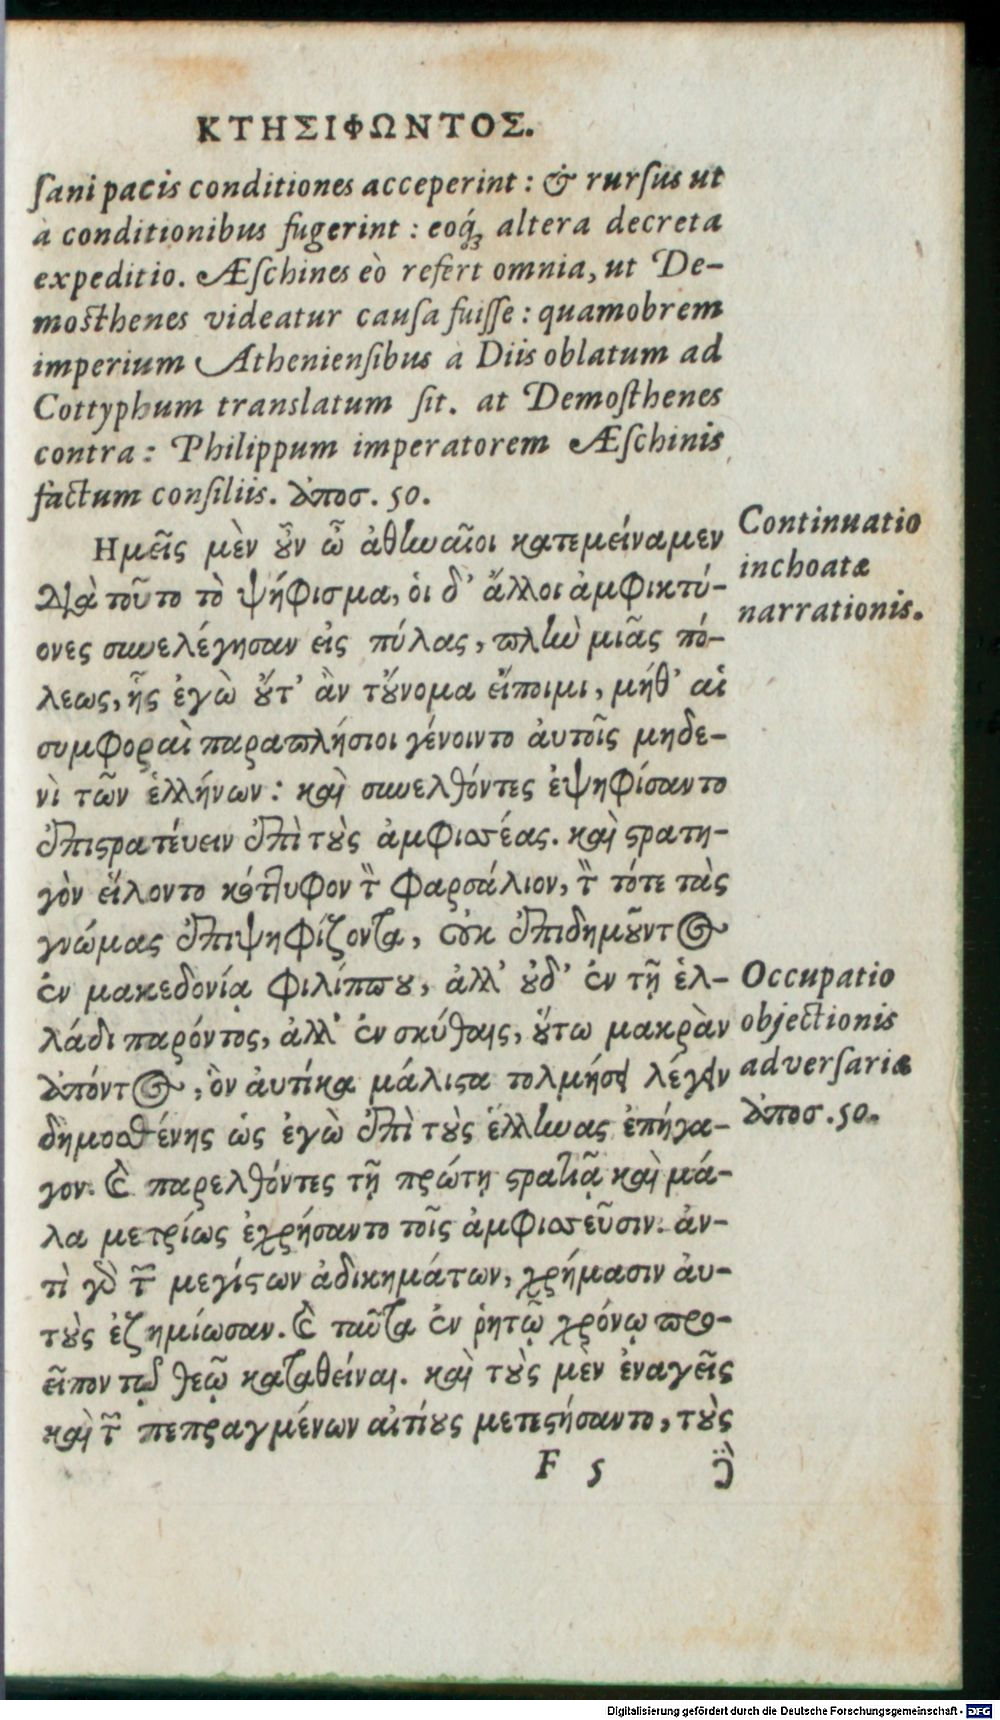 ΚΤΗΣΙΦΩΝΤΟΣ.
sani pacis conditiones acceperint : & rursus ut
à conditionibus fugerint : eoq́ꝫ altera decreta
expeditio. Æschines eò refert omnia, ut De-
mosthenes videatur causa fuisse : quamobrem
imperium Atheniensibus a Diis oblatum ad
Cottyphum translatum sit. at Demosthenes
contra : Philippum imperatorem Æschinis
factum consiliis. ἀποσ. 50.
Ημεῖς μὲν οὖν ὦ ἀθηναῖοι κατεμείναμεν
Continuatio
inchoatæ
narrationis.
διὰ τοῦτο τὸ ψήφισμα, οἱ δ᾽ ἄλλοι ἀμφικτύ-
ονες συνελέγησαν εἰς πύλας, πλὴν μιᾶς πό-
λεως, ἧς ἐγὼ οὔτ᾽ ἂν τοὔνομα εἴποιμι, μήθ᾽ αἱ
συμφοραὶ παραπλήσιοι γένοιντο ἀυτοῖς μηδε-
νὶ τῶν ἑλλήνων : καὶ συνελθόντες ἐψηφίσαντο
ἐπιστρατέυειν ἐπὶ τοὺς ἀμφισσέας. καὶ στρατη-
γὸν εἵλοντο κότλυφον τὸν Φαρσάλιον, τὸν τότε τὰς
γνώμας ἐπιψηφίζοντα, οὐκ ἐπιδημοῦντος
ἐν μακεδονίᾳ Φιλίππου, ἀλλ᾽ οὐδ᾽ ἐν τῇ ἑλ-
Occupatio
objectionis
adversariæ
ἀποσ. 50.
λάδι παρόντος, ἀλλ᾽ ἐν σκύθαις, οὕτω μακρὰν
ἀπόντος, ὃν ἀυτίκα μάλιστα τολμήσει λέγειν
δημοσθένης ὡς ἐγὼ ἐπὶ τοὺς ἕλληνας ἐπήγα-
γον. καὶ παρελθόντες τῇ πρώτῃ στρατιᾷ καὶ μά-
λα μετρίως ἐχρήσαντο τοῖς ἀμφισσεῦσιν. ἀν-
τὶ γὰρ τῶν μεγίστων ἀδικημάτων, χρήμασιν ἀυ-
τοὺς ἐζημίωσαν. καὶ ταῦτα ἐν ῥητῷ χρόνῳ προ-
εῖπον τῷ θεῷ καταθεῖναι. καὶ τοὺς μὲν ἐναγεῖς
καὶ τῶν πεπραγμένων αἰτίους μετεστήσαντο, τοὺς
F 5